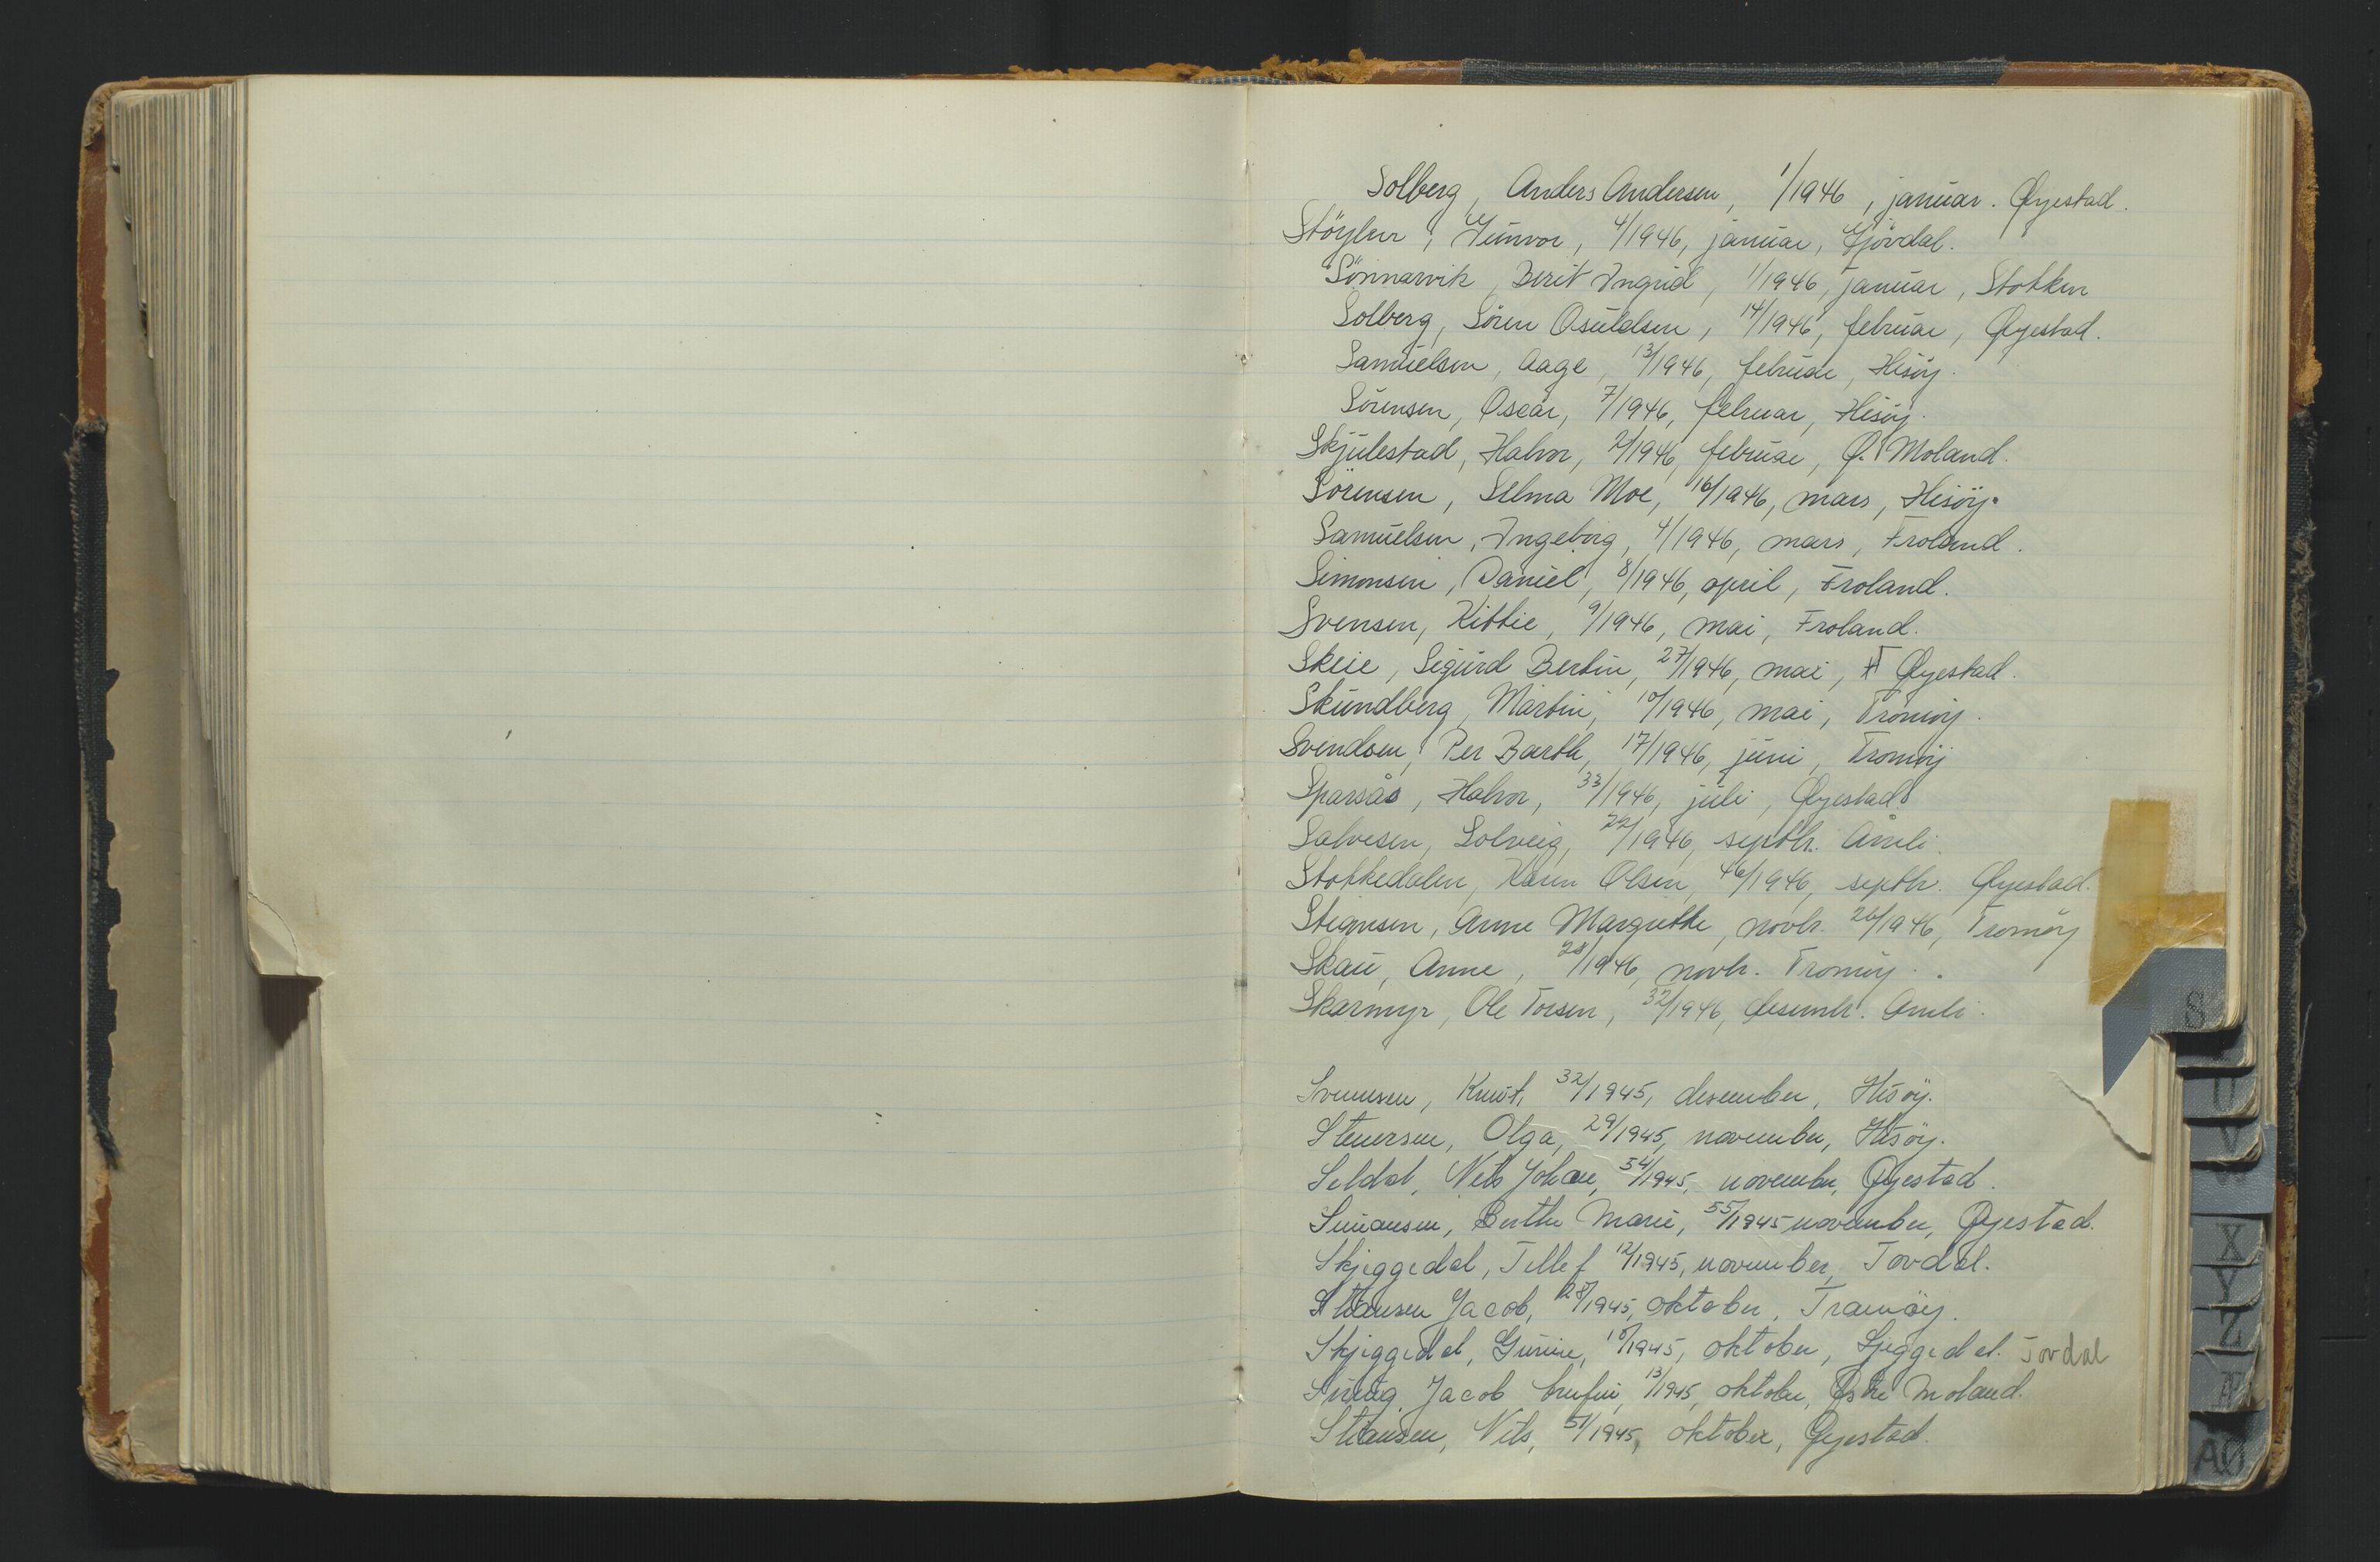 Solberg, Anders Andersen, 1/1946, januar. Øyestad.
Støylen, Gunvor, 4/1946, januar, Gjövdal.
Sönnarvik, Berit Ingrid, 1/1946, januar, Stokken
Solberg, Sören Osuldsen, 14/1946, februar, Øyestad.
Samuelsen, Aage, 13/1946, februar, Hisöy.
Sörensen, Oscar, 7/1946, februar, Hisöy.
Skjulestad, Halvor, 2/1946, februar, Ø. Moland.
Sörensen, Selma Moe, 16/1946, mars, Hisöy.
Samuelsen, Ingeborg, 4/1946, mars, Froland.
Simonsen, Daniel, 8/1946, april, Froland.
Svensen, Kittie, 9/1946, mai, Froland.
Skeie, Sigurd Bertin, 27/1946, mai, Øyestad.
Skundberg, Martin, 10/1946, mai, Tromöy.
Svendsen, Per Barth, 17/1946, juni, Tromöy
Sparsås, Halvor, 33/1946, juli, Øyestad.
Salvesen, Solveig, 22/1946, septbr. Åmli.
Stokkedalen, Karen Olsen, 46/1946, septbr. Øyestad.
Stiansen, Anne Margrethe, novbr. 26/1946, Tromöy
Skau, Anne, 28/1946, novbr. Tromöy.
Skarmyr, Ole Torsen, 32/1946, desembr. Åmli.
Svennsen, Knut, 32/1945, desember, Hisöy.
Stenersen, Olga, 29/1945, november, Hisöy.
Seldal, Nils Johan, 54/1945, november, Øyestad.
Simonsen, Berthe Marie, 55/1945 november, Øyestad.
Skjeggedal, Tellef 12/1945, november, Tovdal.
Stiansen Jacob, 28/1945, oktober, Tromöy.
Skjeggedal, Gunne, 10/1945, oktober, Sjeggedal. Tovdal
Jacob 13/1945, oktober, Østre Moland.
Stiansen, Nils, 51/1945, oktober, Øyestad.
S
U
V
X
Y
Z
Æ
AØ